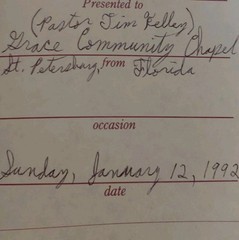 Presented to
(Pastor Jim Kelley)
Grace Community Chapel
St. Petersburg, from Florida
occasion
Sunday, January 12, 1992
date